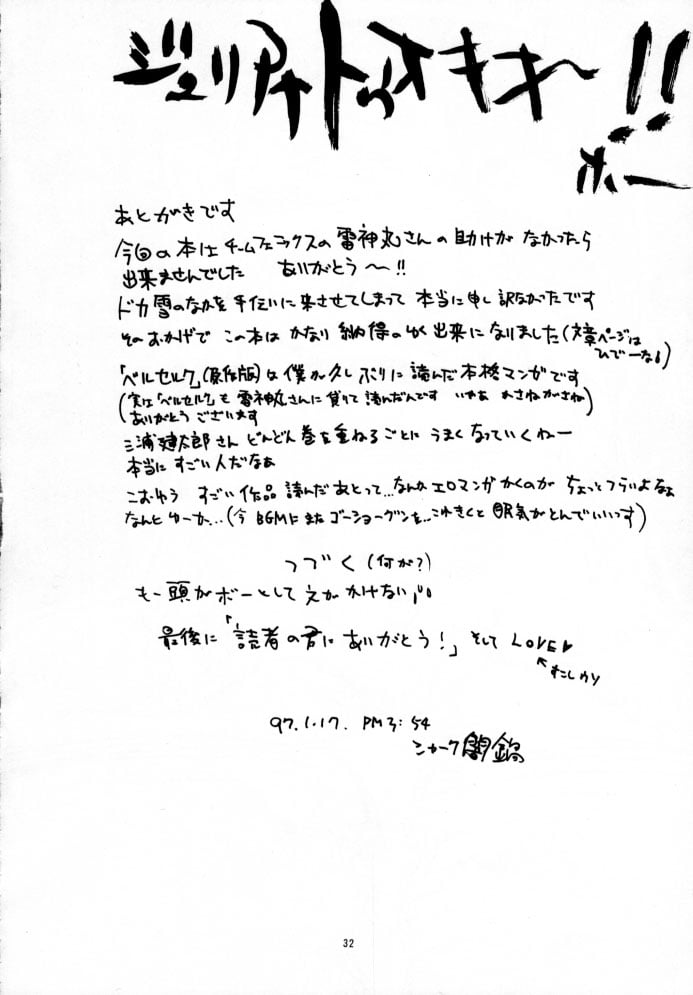 ジュリアナトゥオキキ〜!!
ホー
あとがきです
今回の本はチームフェニックスの雷神丸さんの助けがなかったら
出来ませんでした ありがとう〜!!
ドカ雪のなかを手伝いに来させてしまって 本当に申し訳なかったです
そのおかげで この本は かなり 納得のゆく出来になりました(文章ページは
ひでーなも)
「ベルセルク」(原作版)は僕が久しぶりに読んだ本格マンガです
(実は「ベルセルク」も 雷神丸さんに貸りて読んだんです いやあ かさねがさね)
(ありがとうございます
三浦建太郎さん どんどん巻を重ねるごとに うまくなっていくねー
本当にすごい人だなあ
こおゆう すごい作品 読んだあとって…なんか エロマンガ かくのが ちょっとつらいよなぁ
なんとゆーか…(今 BGMに またゴーショーグンを…これきくと 眠気がとんでいいっす)
つづく(何が?)
もー頭がボーとして えが かけない
最後に「読者の君にありがとう!」そして LOVE♥
↖すこしウソ
97.1.17. PM3:54
シャーク闇鍋
32